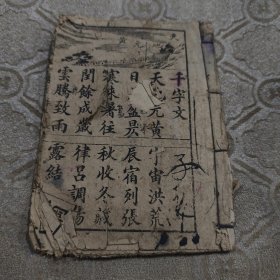 千字文
天地元黄 宇宙洪荒
日月盈昃 辰宿列張
寒来暑往 秋收冬藏
閏餘成歲 律吕調陽
雲騰致雨 露結